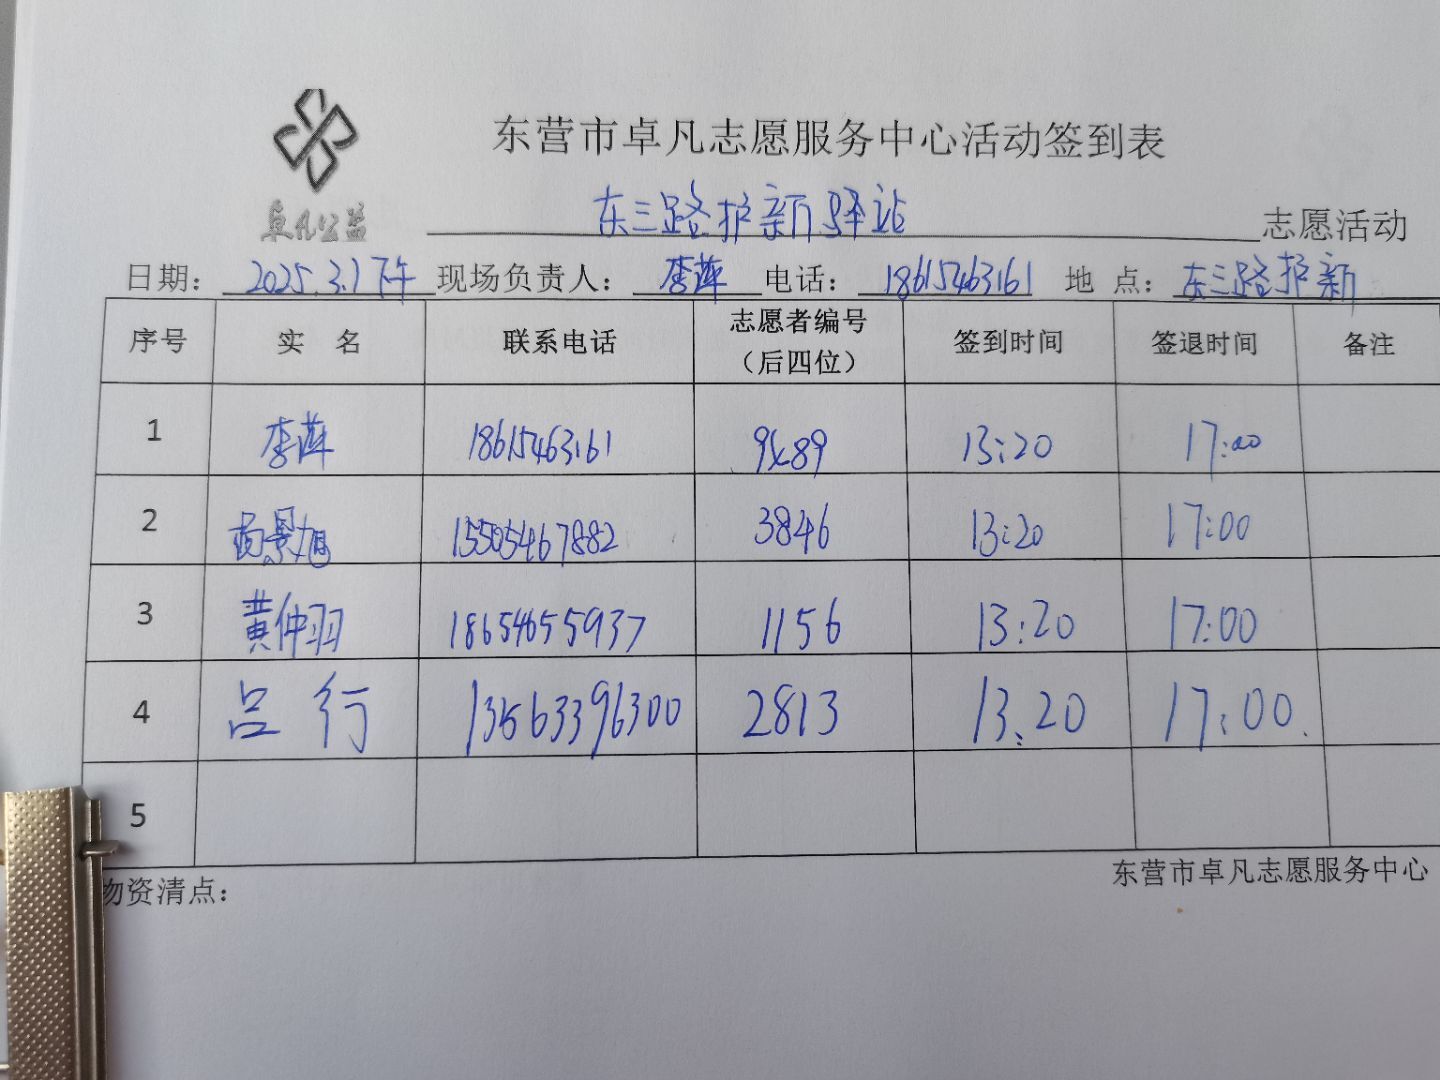 东营市卓凡志愿服务中心活动签到表
卓凡公益
东三路护新驿站 志愿活动
日期： 2025.3.1下午 现场负责人： 李萍 电话： 18615463161 地 点： 东三路护新
序号 实 名 联系电话 志愿者编号（后四位） 签到时间 签退时间 备注
1 李萍 18615463161 9489 13:20 17:00
2 景旭 15505467882 3846 13:20 17:00
3 黄仲羽 18654655937 1156 13:20 17:00
4 吕行 13563396300 2813 13:20 17:00.
5
物资清点：
东营市卓凡志愿服务中心